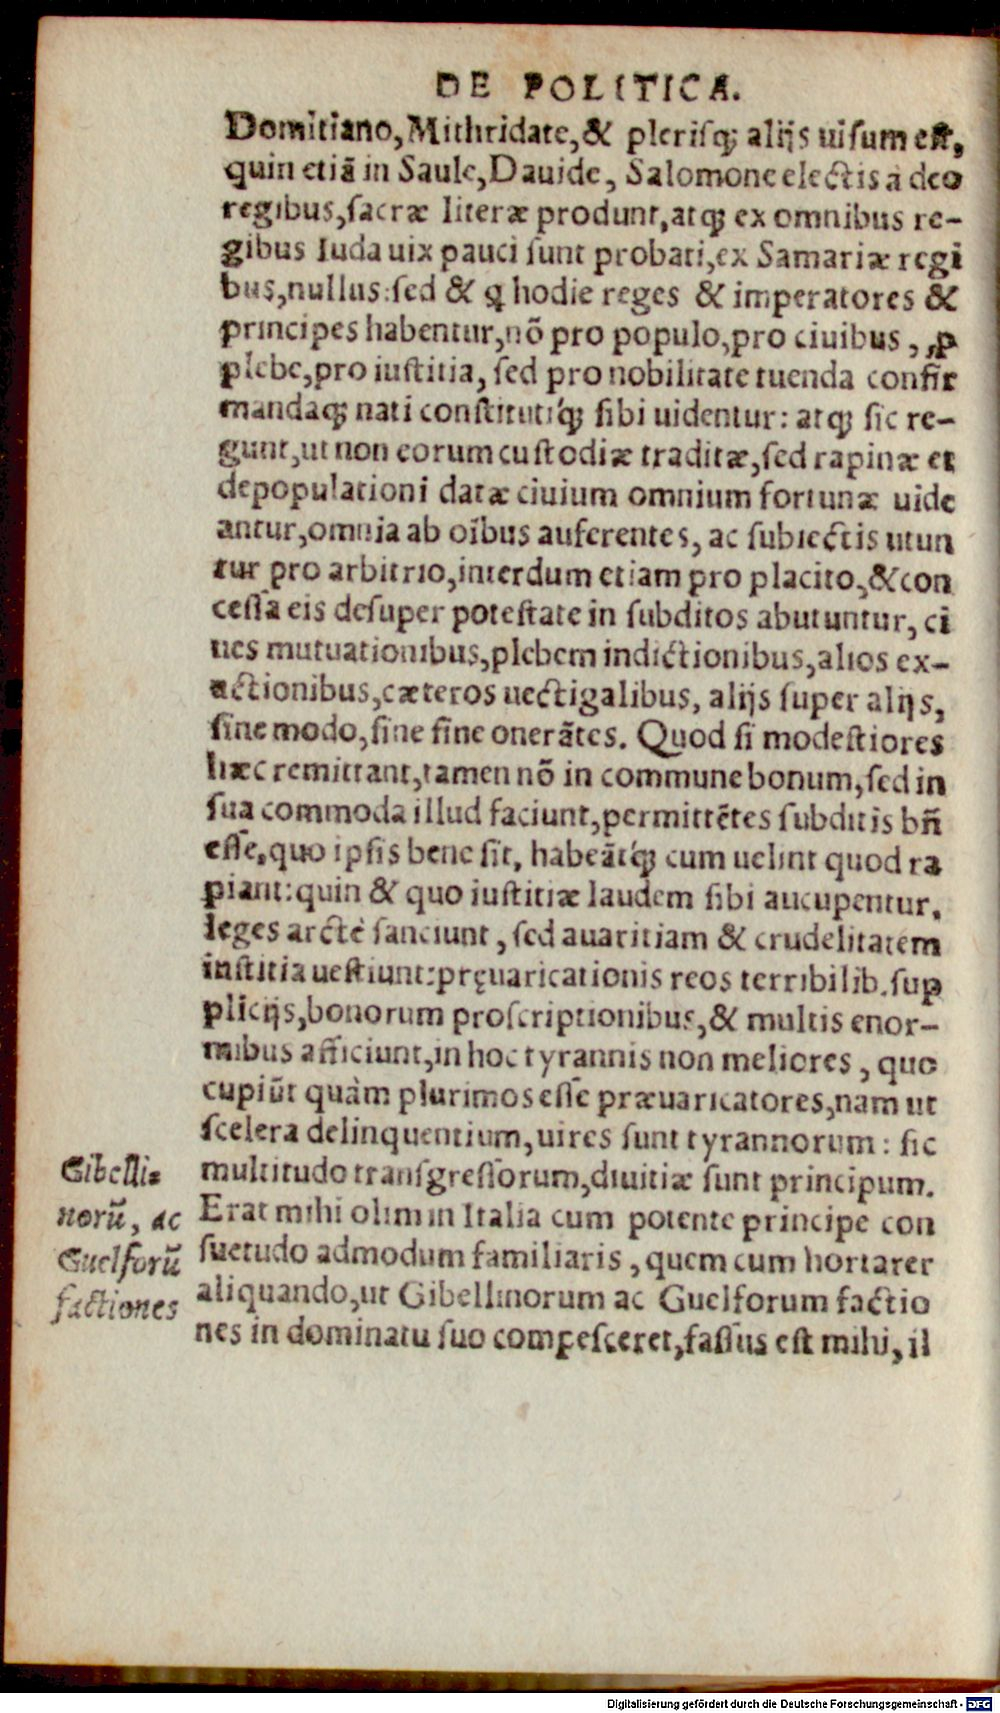 DE POLITICA.
Domitiano, Mithridate, & plerisq; alijs uisum est,
quin etiã in Saule, Dauide, Salomone electis à deo
regibus, sacræ literæ produnt, atq; ex omnibus re-
gibus Iuda uix pauci sunt probati, ex Samariæ regi
bus, nullus: sed & q hodie reges & imperatores &
principes habentur, nõ pro populo, pro ciuibus, ꝓ
plebe, pro iustitia, sed pro nobilitate tuenda confir
mandaq; nati constitutiq́; sibi uidentur: atq; sic re-
gunt, ut non eorum custodiæ traditæ, sed rapinæ et
depopulationi datæ ciuium omnium fortunæ uide
antur, omnia ab oĩbus auferentes, ac subiectis utun
tur pro arbitrio, interdum etiam pro placito, & con
cessa eis desuper potestate in subditos abutuntur, ci
ues mutuationibus, plebem indictionibus, alios ex-
actionibus, cæteros uectigalibus, alijs super alijs,
sine modo, sine fine onerãtes. Quod si modestiores
hæc remittant, tamen nõ in commune bonum, sed in
sua commoda illud faciunt, permittẽtes subditis bñ
esse, quo ipsis bene sit, habeãtq́; cum uelint quod ra
piant: quin & quo iustitiæ laudem sibi aucupentur,
leges arctè sanciunt, sed auaritiam & crudelitatem
iustitia uestiunt: pręuaricationis reos terribilib. sup
plicijs, bonorum proscriptionibus, & multis enor-
mibus afficiunt, in hoc tyrannis non meliores, quo
cupiũt quàm plurimos esse præuaricatores, nam ut
scelera delinquentium, uires sunt tyrannorum: sic
multitudo transgressorum, diuitiæ sunt principum.
Erat mihi olim in Italia cum potente principe con
suetudo admodum familiaris, quem cum hortarer
aliquando, ut Gibellinorum ac Guelforum factio
nes in dominatu suo compesceret, fassus est mihi, il
Gibelli-
norũ, ac
Guelforũ
factiones
Digitalisierung gefördert durch die Deutsche Forschungsgemeinschaft - DFG